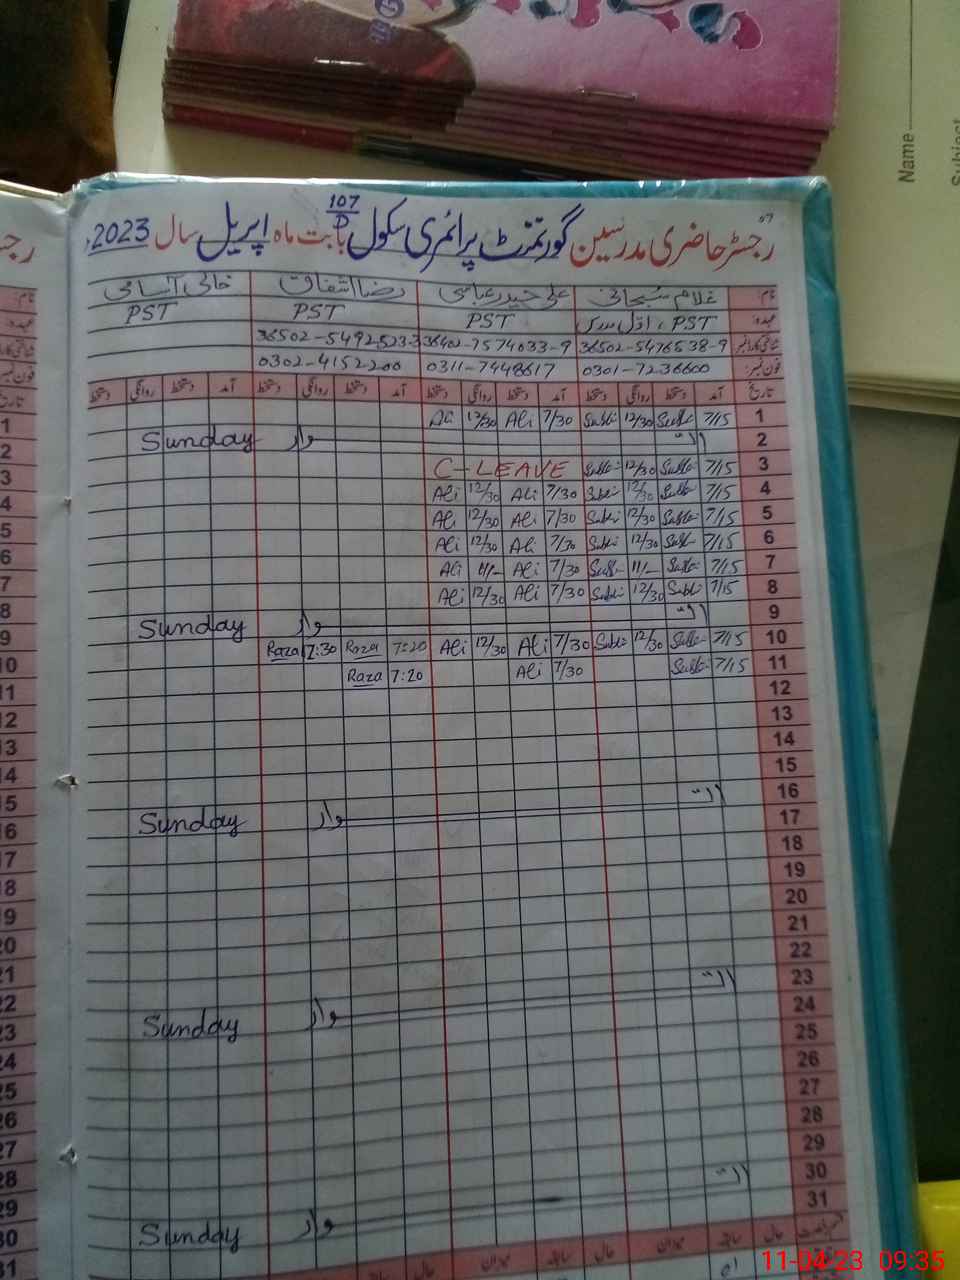 Name
رجسٹر حاضری مدرسین گورنمنٹ پرائمری سکول 107/D بابت ماہ اپریل سال 2023ء
نام: غلام سُبحانی علی حیدر عباسی رضا اشفاق خالی آسامی
عہدہ: PST، اوّل مدرس PST PST PST
شناختی کارڈ نمبر 36502-5476538-9 36402-7574033-9 36502-5492523-3
فون نمبر: 0301-7236600 0311-7948617 0302-4152200
تاریخ آمد دستخط روانگی دستخط آمد دستخط روانگی دستخط آمد دستخط روانگی دستخط آمد دستخط روانگی دستخط
1 7/15 12/30 7/30 Ali 12/30 Ali
2 اتوار Sunday
3 7/15 12/30 C-LEAVE
4 7/15 12/30 7/30 Ali 12/30 Ali
5 7/15 12/30 7/30 Ali 12/30 Ali
6 7/15 12/30 7/30 Ali 12/30 Ali
7 7/15 11/- 7/30 Ali 11/- Ali
8 7/15 12/30 7/30 Ali 12/30 Ali
9 اتوار Sunday
10 7/15 12/30 7/30 Ali 12/30 Ali 7:20 Raza 7:30 Raza
11 7/15 7/30 Ali 7:20 Raza
12
13
14
15
16 اتوار Sunday
17
18
19
20
21
22
23 اتوار Sunday
24
25
26
27
28
29
30 اتوار Sunday
31
11-04-23 09:35